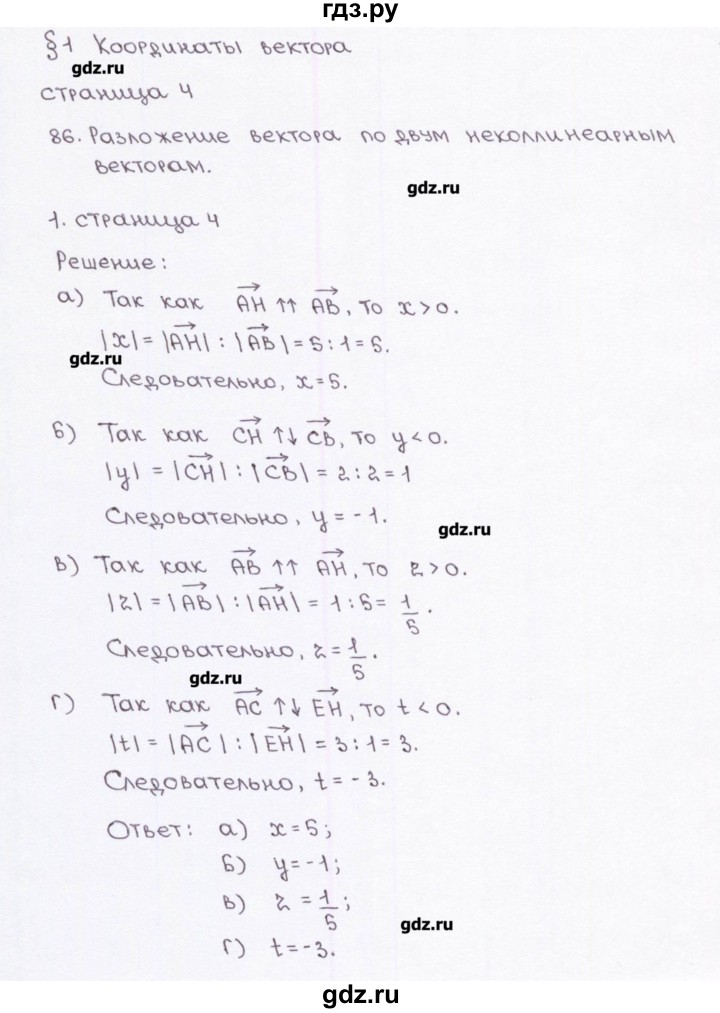 гдз.ру
§1 Координаты вектора
gdz.ru
страница 4
86. Разложение вектора по двум неколлинеарным
векторам.
gdz.ru
1. страница 4
Решение:
а) Так как AH ↑↑ AB, то x > 0.
|x| = |AH| : |AB| = 5 : 1 = 5.
gdz.ru
Следовательно, x = 5.
б) Так как CH ↑↓ CB, то y < 0.
|y| = |CH| : |CB| = 2 : 2 = 1
Следовательно, y = -1.
gdz.ru
в) Так как AB ↑↑ AH, то z > 0.
|z| = |AB| : |AH| = 1 : 5 = 1/5.
Следовательно, z = 1/5.
gdz.ru
г) Так как AC ↑↓ EH, то t < 0.
|t| = |AC| : |EH| = 3 : 1 = 3.
Следовательно, t = -3.
Ответ: а) x = 5;
б) y = -1;
в) z = 1/5;
gdz.ru
г) t = -3.
gdz.ru